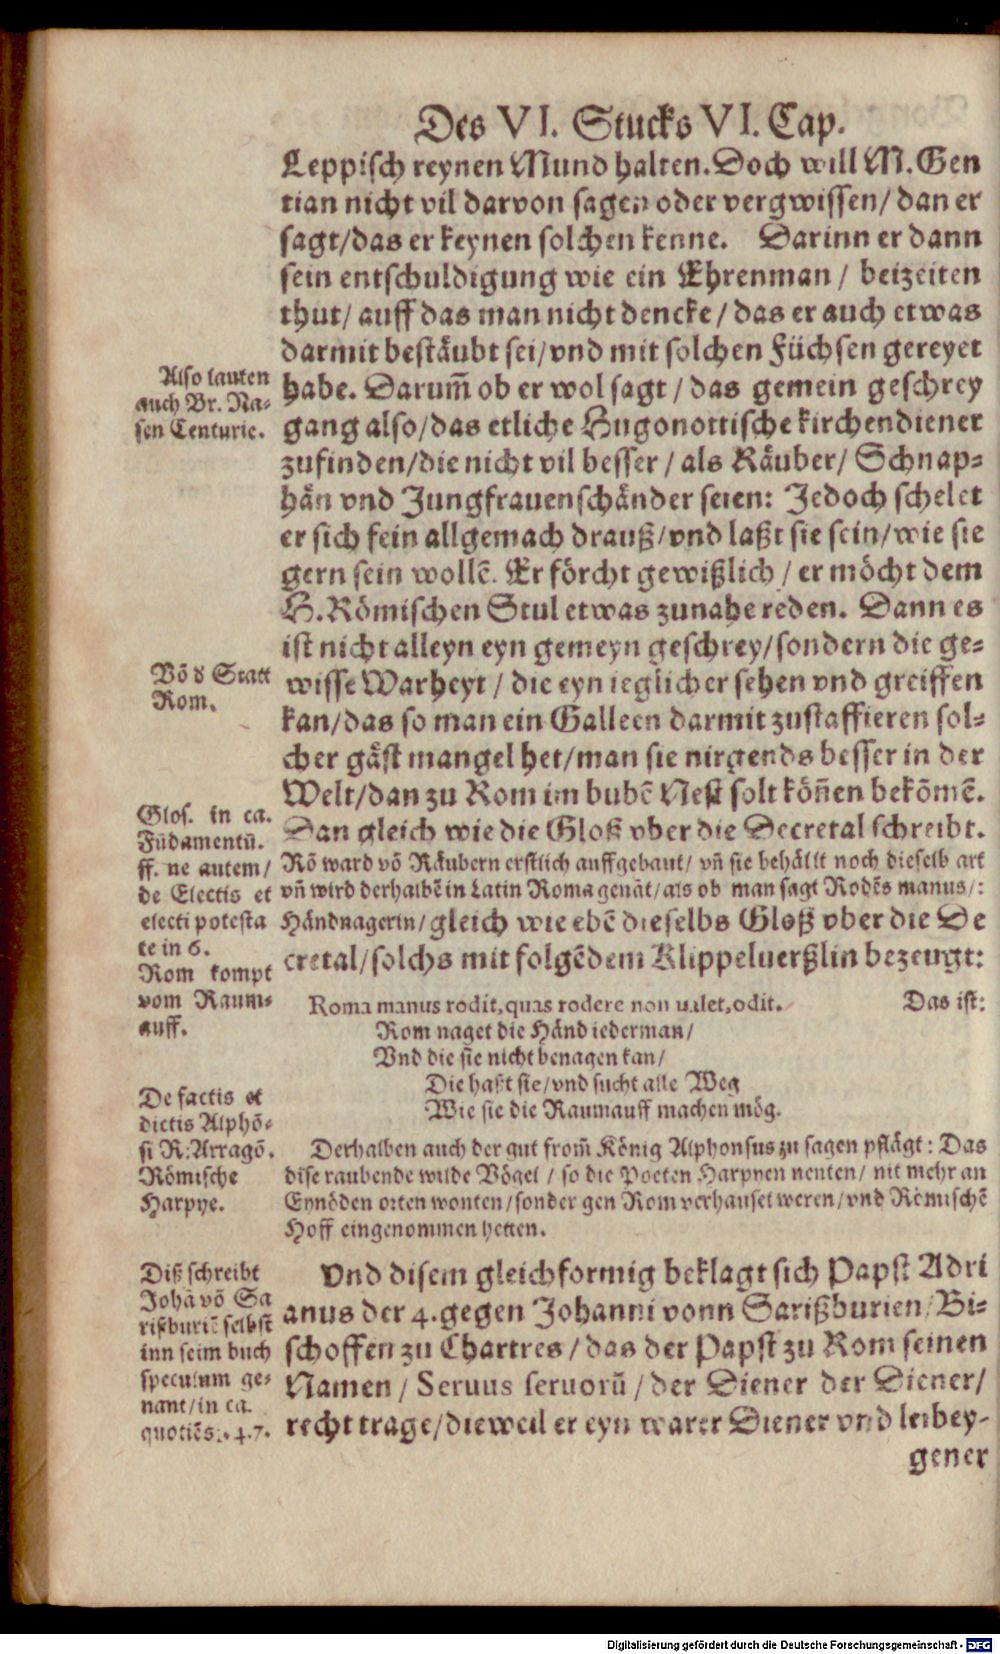 Des VI. Stucks VI. Cap.
Leppisch reynen Mund halten. Doch will M. Gen
tian nicht vil darvon sagen oder vergwissen/ dan er
sagt/das er keynen solchen kenne. Darinn er dann
sein entschuldigung wie ein Ehrenman / beizeiten
thut/ auff das man nicht dencke / das er auch etwas
darmit bestäubt sei/vnd mit solchen Füchsen gereyet
Also lauten
auch Br. Na-
sen Centurie.
habe. Darum̃ ob er wol sagt / das gemein geschrey
gang also/das etliche Hugonottische kirchendiener
zufinden/die nicht vil besser / als Räuber/ Schnap-
hän vnd Jungfrauenschänder seien: Jedoch schelet
er sich fein allgemach drauß/vnd laßt sie sein/wie sie
gern sein wollẽ. Er förcht gewißlich / er möcht dem
H. Römischen Stul etwas zunahe reden. Dann es
ist nicht alleyn eyn gemeyn geschrey/sondern die ge-
Võ d Statt
Rom.
wisse Warheyt / die eyn ieglicher sehen vnd greiffen
kan/das so man ein Galleen darmit zustaffieren sol-
cher gäst mangel het/man sie nirgends besser in der
Welt/dan zu Rom im bubẽ Nest solt köñen bekõmẽ.
Glos. in ca.
Fũdamentũ.
ff. ne autem/
de Electis et
electi potesta
te in 6.
Rom kompt
vom Raum-
auff.
Dan gleich wie die Gloß vber die Decretal schreibt.
Rõ ward võ Räubern erstlich auffgebaut/ vñ sie behällt noch dieselb art
vñ wird derhalbẽ in Latin Roma genãt/als ob man sagt Rodẽs manus/:
Händnagerin/gleich wie ebẽ dieselbs Gloß vber die De
cretal/solchs mit folgẽdem Klippelverßlin bezeugt:
Roma manus rodit, quas rodere non ualet, odit. Das ist:
Rom naget die Händ iederman/
Vnd die sie nicht benagen kan/
Die haßt sie/vnd sucht alle Weg
Wie sie die Raumauff machen mög.
De factis et
dictis Alphõ-
si R: Arragõ.
Römische
Harpye.
Derhalben auch der gut from̃ König Alphonsus zu sagen pflägt: Das
dise raubende wilde Vögel / so die Poeten Harpyen nenten/ nit mehr an
Eynöden orten wonten/sonder gen Rom verhauset weren/vnd Römischẽ
Hoff eingenommen hetten.
Diß schreibt
Johã võ Sa
rißburiẽ selbst
inn seim buch
speculum ge-
nant/in ca.
quotiẽs. 4.7.
Vnd disem gleichformig beklagt sich Papst Adri
anus der 4. gegen Johanni vonn Sarißburien/Bi-
schoffen zu Chartres / das der Papst zu Rom seinen
Namen / Seruus seruorũ / der Diener der Diener/
recht trage/dieweil er eyn warer Diener vnd leibey-
gener
Digitalisierung gefördert durch die Deutsche Forschungsgemeinschaft - DFG